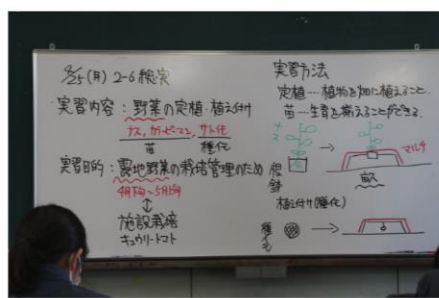 5/25(月) 2-6 総実
・実習内容:野菜の定植・植え付け
ナス,カラーピーマン,サトイモ
苗 種イモ
実習目的:露地野菜の栽培管理のため
4月下旬~5月下旬
↕
施設栽培
キュウリ・トマト
実習方法
定植…植物を畑に植えること.
苗…生育を揃えることができる.
ナス
マルチ
植え付け(種イモ)
種イモ